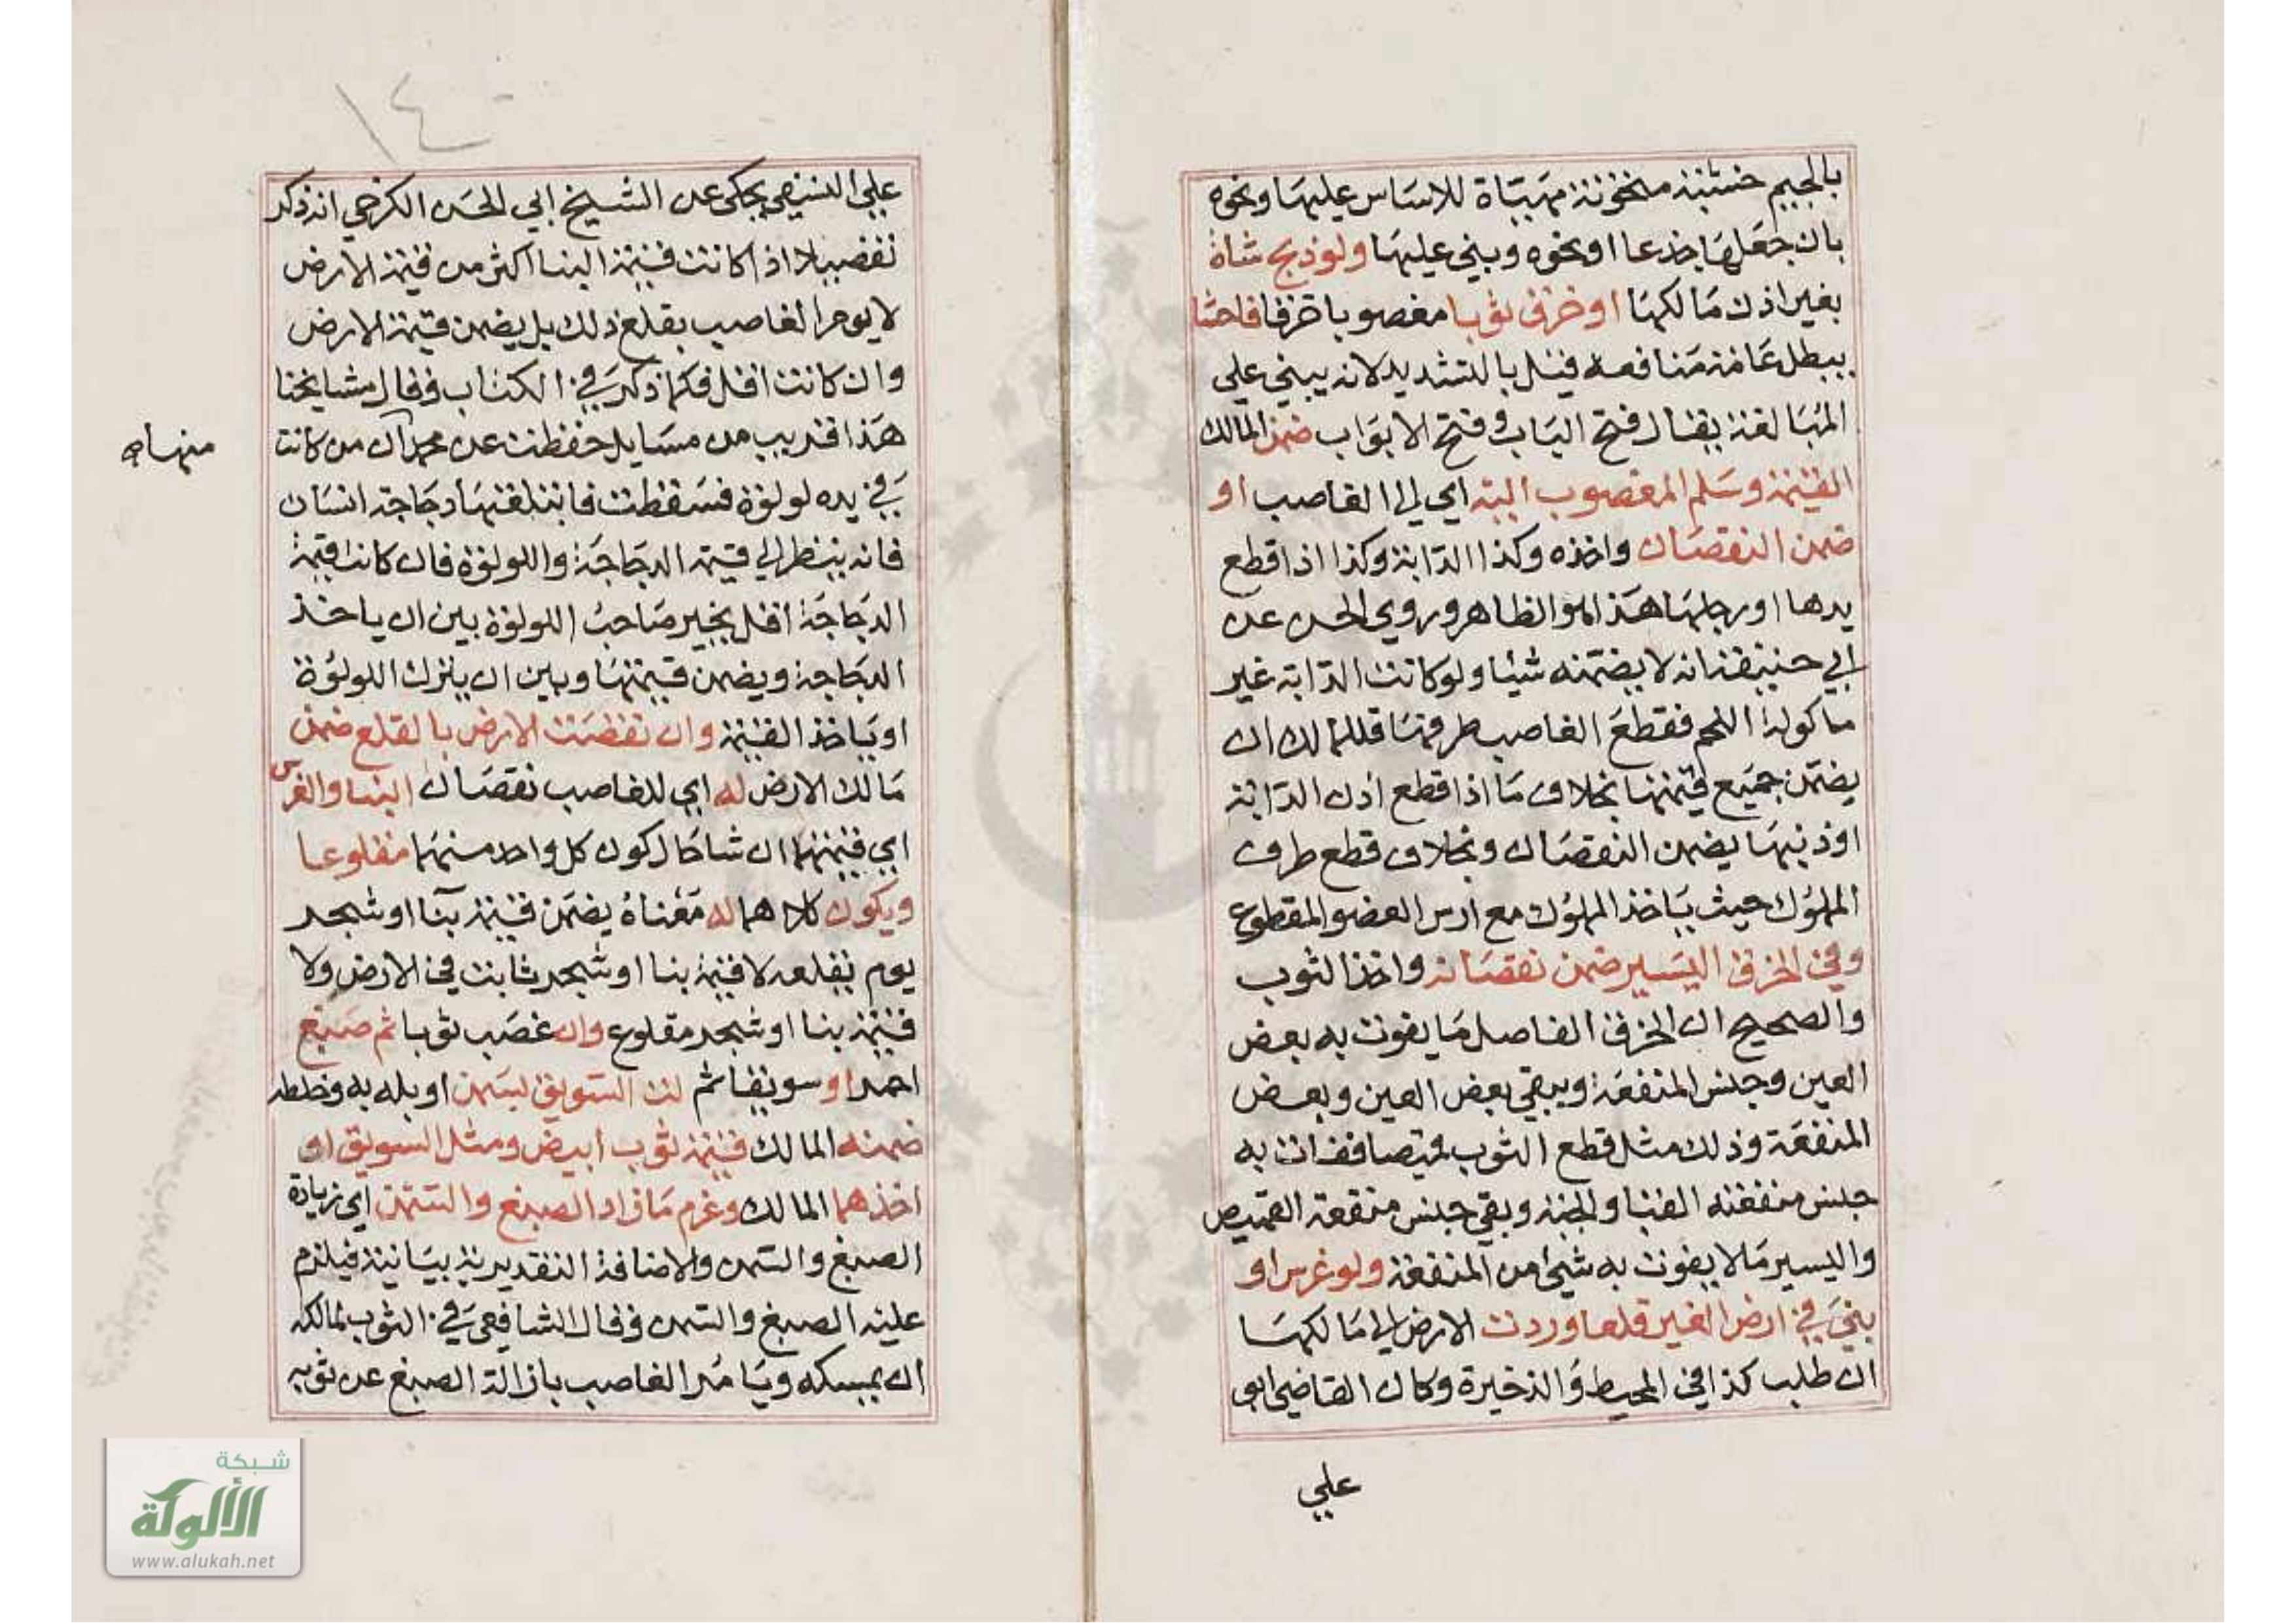 بالجيم خشبة منحوتة مهيئاة للاساس عليها ونحوه
بان جعلها جذعا او نحوه وبني عليها ولو ذبح شاة
بغير اذن مالكها او خرق ثوبا مغصوبا خرقا فاحشا
يبطل عامة منافعه قيل بالتشديد لانه يبني علي
المبالغة يقال فتح الباب وفتح الابواب ضمن المالك
القيمة وسلم المغصوب اليه اي الي الغاصب او
ضمن النقصان واخذه وكذا الدابة وكذا اذا قطع
يدها او رجلها هذا هو الظاهر وروي الحسن عن
ابي حنيفة انه لا يضمنه شيئا ولو كانت الدابة غير
ماكولة اللحم فقطع الغاصب طرفها فللمالك ان
يضمن جميع قيمتها بخلاف ما اذا قطع اذن الدابة
او ذنبها يضمن النقصان وبخلاف قطع طرف
المملوك حيث ياخذ المملوك مع ارس العضو المقطوع
وفي الخرق اليسير ضمن نقصانه واخذ الثوب
والصحيح ان الخرق الفاصل ما يفوت به بعض
العين وجنس المنفعة ويبقي بعض العين وبعض
المنفعة وذلك مثل قطع الثوب قميصا ففات به
جنس منفعته القبا والجبة وبقي جنس منفعة القميص
واليسير ما لا يفوت به شيئ من المنفعة ولو غرس او
بني في ارض الغير قلعا وردت الارض الي مالكها
ان طلب كذا في المحيط والذخيرة وكان القاضي ابو
علي
١٤٠
علي النسفي يحكي عن الشيخ ابي الحسن الكرخي انه ذكر
تفصيلا اذا كانت قيمة البنا اكثر من قيمة الارض
لا يومر الغاصب بقلع ذلك بل يضمن قيمة الارض
وان كانت اقل فكما ذكر في الكتاب وقال مشايخنا
هذا قريب من مسايل حفظت عن محمد ان من كانت
منها
في يده لولوة فسقطت فابتلعتها دجاجة انسان
فانه ينظر الي قيمة الدجاجة واللولوة فان كانت قيمة
الدجاجة اقل يخير صاحب اللولوة بين ان ياخذ
الدجاجة ويضمن قيمتها وبين ان يترك اللولوة
او ياخذ القيمة وان نقضت الارض بالقلع ضمن
مالك الارض له اي للغاصب نقصان البنا والغرس
اي قيمتهما ان شا حال كون كل واحد منهما مقلوعا
ويكون كلاهما له معناه يضمن قيمة بنا او شجر
يوم بقلعه لا قيمة بنا او شجر ثابت في الارض ولا
قيمة بنا او شجر مقلوع وان غصب ثوبا ثم صبغ
احمر او سويقا ثم لت السويق بسمن او بله به وخلطه
ضمنه المالك قيمة ثوب ابيض ومثل السويق او
اخذهما المالك وغرم ما زاد الصبغ والسمن اي زيادة
الصبغ والسمن والاضافة التقديرية بيانية فيلزم
عليه الصبغ والسمن وقال الشافعي في الثوب لمالكه
ان يمسكه ويامر الغاصب بازالة الصبغ عن ثوبه
شبكة
الألوكة
www.alukah.net